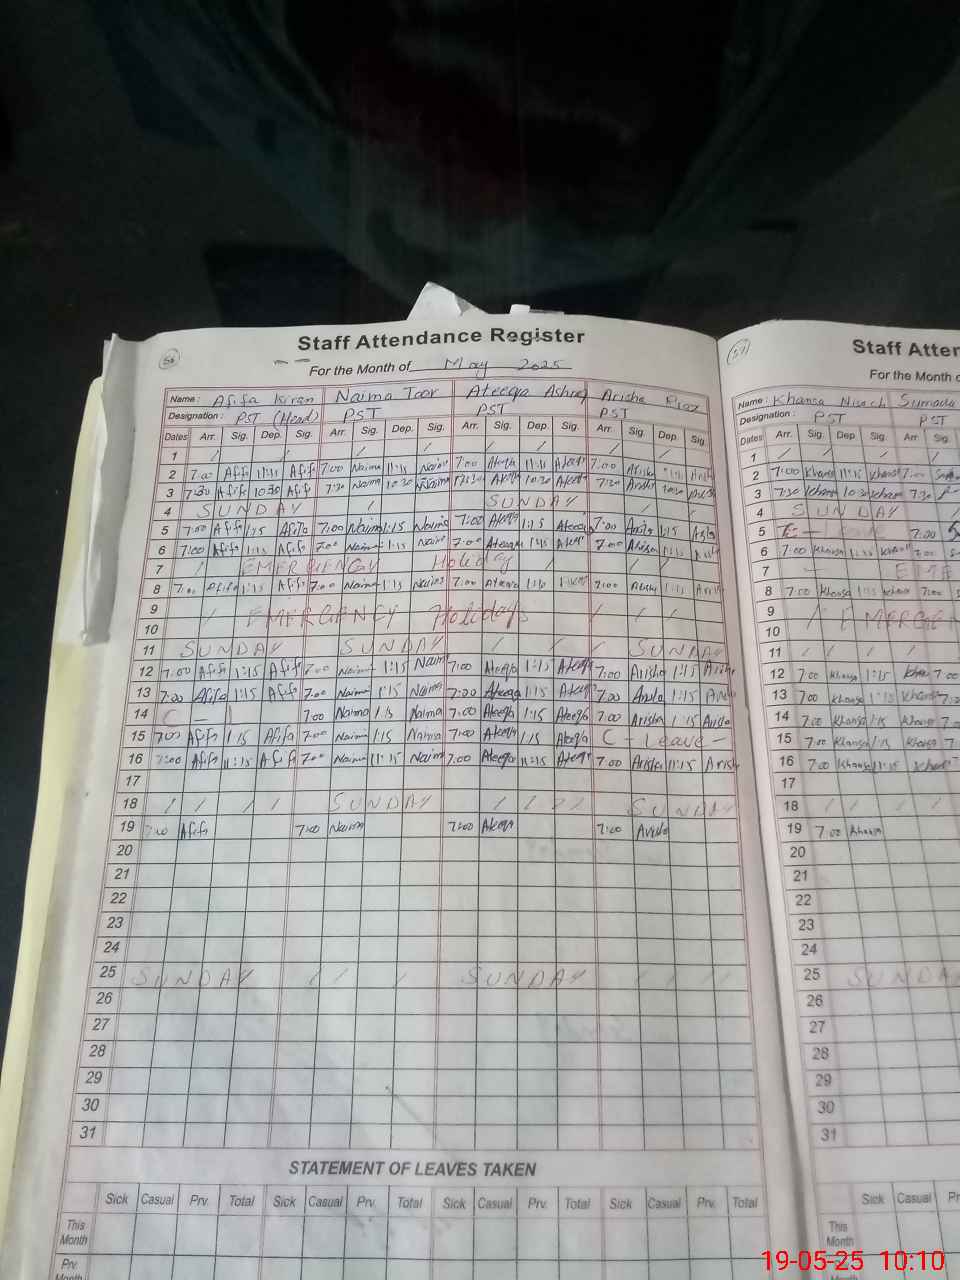 58
Staff Attendance Register
For the Month of May 2025
Name: Afifa Kiran Naima Toor Ateeqa Ashraf Arisha Riaz
Designation: PST (Head) PST PST PST
Dates Arr. Sig. Dep. Sig. Arr. Sig. Dep. Sig. Arr. Sig. Dep. Sig. Arr. Sig. Dep. Sig.
1
2 7:00 Afifa 11:15 Afifa 7:00 Naima 11:15 Naima 7:00 Ateeqa 11:15 Ateeqa 7:00 Arisha 11:15 Arisha
3 7:30 Afifa 10:30 Afifa 7:30 Naima 10:30 Naima 7:30 Ateeqa 10:30 Ateeqa 7:30 Arisha 10:30 Arisha
4 SUNDAY SUNDAY
5 7:00 Afifa 1:15 Afifa 7:00 Naima 1:15 Naima 7:00 Ateeqa 1:15 Ateeqa 7:00 Arisha 1:15 Arisha
6 7:00 Afifa 1:15 Afifa 7:00 Naima 1:15 Naima 7:00 Ateeqa 1:15 Ateeqa 7:00 Arisha 1:15 Arisha
7 EMERGENCY Holiday
8 7:00 Afifa 1:15 Afifa 7:00 Naima 1:15 Naima 7:00 Ateeqa 7:00 Arisha 1:15 Arisha
9 EMERGENCY Holidays
10
11 SUNDAY SUNDAY SUNDAY
12 7:00 Afifa 1:15 Afifa 7:00 Naima 1:15 Naima 7:00 Ateeqa 1:15 Ateeqa 7:00 Arisha 1:15 Arisha
13 7:00 Afifa 1:15 Afifa 7:00 Naima 1:15 Naima 7:00 Ateeqa 1:15 Ateeqa 7:00 Arisha 1:15 Arisha
14 C - L 7:00 Naima 1:15 Naima 7:00 Ateeqa 1:15 Ateeqa 7:00 Arisha 1:15 Arisha
15 7:00 Afifa 1:15 Afifa 7:00 Naima 1:15 Naima 7:00 Ateeqa 1:15 Ateeqa C - Leave -
16 7:00 Afifa 11:15 Afifa 7:00 Naima 11:15 Naima 7:00 Ateeqa 11:15 Ateeqa 7:00 Arisha 11:15 Arisha
17
18 SUNDAY SUNDAY
19 7:00 Afifa 7:00 Naima 7:00 Ateeqa 7:00 Arisha
20
21
22
23
24
25 SUNDAY SUNDAY
26
27
28
29
30
31
STATEMENT OF LEAVES TAKEN
Sick Casual Prv. Total Sick Casual Prv. Total Sick Casual Prv. Total Sick Casual Prv. Total
This Month
Prv. Month
57
Staff Atten
For the Month o
Name: Khansa
Designation: PST PST
Dates Arr. Sig. Dep. Sig. Arr. Sig.
1
2 7:00 Khansa 11:15 Khansa 7:00
3 7:30 Khansa 10:30 Khansa 7:30
4 SUNDAY
5 7:00
6 7:00 Khansa 1:15 Khansa 7:00
7 EME
8 7:00 Khansa 1:15 Khansa 7:00
9 EMERGEN
10
11
12 7:00 Khansa 1:15 Khansa 7:00
13 7:00 Khansa 1:15 Khansa
14 7:00 Khansa 1:15 Khansa
15 7:00 Khansa 1:15 Khansa 7
16 7:00 Khansa 11:15 Khansa
17
18
19 7:00 Khansa
20
21
22
23
24
25 SUNDAY
26
27
28
29
30
31
Sick Casual Pr
This Month
Prv. Month
19-05-25 10:10